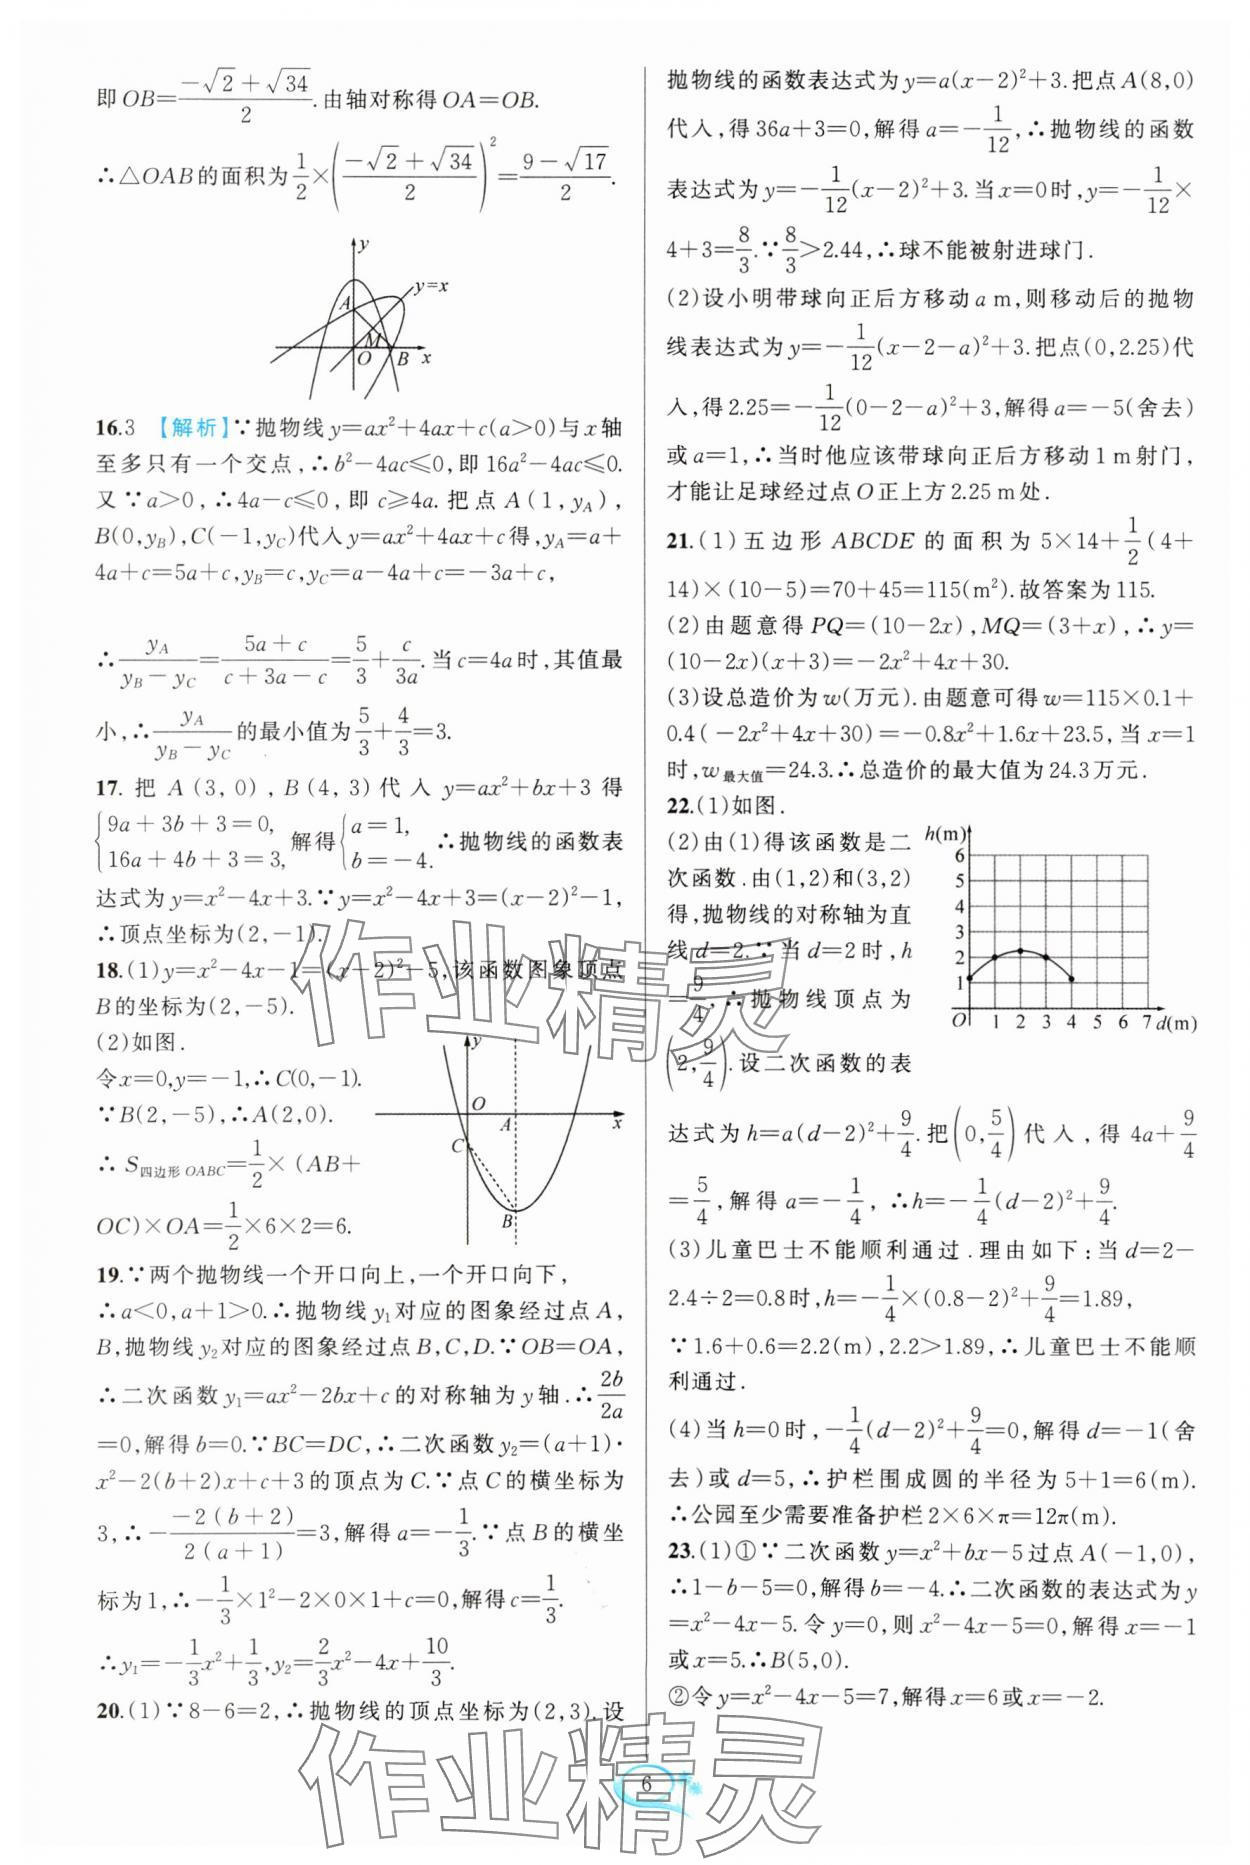 即OB=(-√2+√34)/2.由轴对称得OA=OB.
∴△OAB的面积为1/2×((-√2+√34)/2)²=(9-√17)/2.
y
y=x
A
M
O B x
16.3 【解析】∵抛物线y=ax²+4ax+c(a>0)与x轴
至多只有一个交点,∴b²-4ac≤0,即16a²-4ac≤0.
又∵a>0,∴4a-c≤0,即c≥4a.把点A(1,y_A),
B(0,y_B),C(-1,y_C)代入y=ax²+4ax+c得,y_A=a+
4a+c=5a+c,y_B=c,y_C=a-4a+c=-3a+c,
∴y_A/(y_B-y_C)=(5a+c)/(c+3a-c)=5/3+c/3a.当c=4a时,其值最
小,∴y_A/(y_B-y_C)的最小值为5/3+4/3=3.
17.把A(3,0),B(4,3)代入y=ax²+bx+3得
{9a+3b+3=0, 16a+4b+3=3, 解得{a=1, b=-4. ∴抛物线的函数表
达式为y=x²-4x+3.∵y=x²-4x+3=(x-2)²-1,
∴顶点坐标为(2,-1).
18.(1)y=x²-4x-1=(x-2)²-5,该函数图象顶点
B的坐标为(2,-5).
(2)如图.
令x=0,y=-1,∴C(0,-1).
∵B(2,-5),∴A(2,0).
∴S四边形OABC=1/2×(AB+
OC)×OA=1/2×6×2=6.
y
O
A x
C
B
19.∵两个抛物线一个开口向上,一个开口向下,
∴a<0,a+1>0.∴抛物线y₁对应的图象经过点A,
B,抛物线y₂对应的图象经过点B,C,D.∵OB=OA,
∴二次函数y₁=ax²-2bx+c的对称轴为y轴.∴2b/2a
=0,解得b=0.∵BC=DC,∴二次函数y₂=(a+1)·
x²-2(b+2)x+c+3的顶点为C.∵点C的横坐标为
3,∴-(-2(b+2))/(2(a+1))=3,解得a=-1/3.∵点B的横坐
标为1,∴-1/3×1²-2×0×1+c=0,解得c=1/3.
∴y₁=-1/3x²+1/3,y₂=2/3x²-4x+10/3.
20.(1)∵8-6=2,∴抛物线的顶点坐标为(2,3).设
抛物线的函数表达式为y=a(x-2)²+3.把点A(8,0)
代入,得36a+3=0,解得a=-1/12,∴抛物线的函数
表达式为y=-1/12(x-2)²+3.当x=0时,y=-1/12×
4+3=8/3.∵8/3>2.44,∴球不能被射进球门.
(2)设小明带球向正后方移动a m,则移动后的抛物
线表达式为y=-1/12(x-2-a)²+3.把点(0,2.25)代
入,得2.25=-1/12(0-2-a)²+3,解得a=-5(舍去)
或a=1,∴当时他应该带球向正后方移动1 m射门,
才能让足球经过点O正上方2.25 m处.
21.(1)五边形ABCDE的面积为5×14+1/2(4+
14)×(10-5)=70+45=115(m²).故答案为115.
(2)由题意得PQ=(10-2x),MQ=(3+x),∴y=
(10-2x)(x+3)=-2x²+4x+30.
(3)设总造价为w(万元).由题意可得w=115×0.1+
0.4(-2x²+4x+30)=-0.8x²+1.6x+23.5,当x=1
时,w最大值=24.3.∴总造价的最大值为24.3万元.
22.(1)如图.
(2)由(1)得该函数是二
次函数.由(1,2)和(3,2)
得,抛物线的对称轴为直
线d=2.∵当d=2时,h
=9/4,∴抛物线顶点为
(2,9/4).设二次函数的表
h(m)
6
5
4
3
2
1
O 1 2 3 4 5 6 7 d(m)
达式为h=a(d-2)²+9/4.把(0,5/4)代入,得4a+9/4
=5/4,解得a=-1/4,∴h=-1/4(d-2)²+9/4.
(3)儿童巴士不能顺利通过.理由如下:当d=2-
2.4÷2=0.8时,h=-1/4×(0.8-2)²+9/4=1.89,
∵1.6+0.6=2.2(m),2.2>1.89,∴儿童巴士不能顺
利通过.
(4)当h=0时,-1/4(d-2)²+9/4=0,解得d=-1(舍
去)或d=5,∴护栏围成圆的半径为5+1=6(m).
∴公园至少需要准备护栏2×6×π=12π(m).
23.(1)①∵二次函数y=x²+bx-5过点A(-1,0),
∴1-b-5=0,解得b=-4.∴二次函数的表达式为y
=x²-4x-5.令y=0,则x²-4x-5=0,解得x=-1
或x=5.∴B(5,0).
②令y=x²-4x-5=7,解得x=6或x=-2.
作业精灵
作业精灵
6